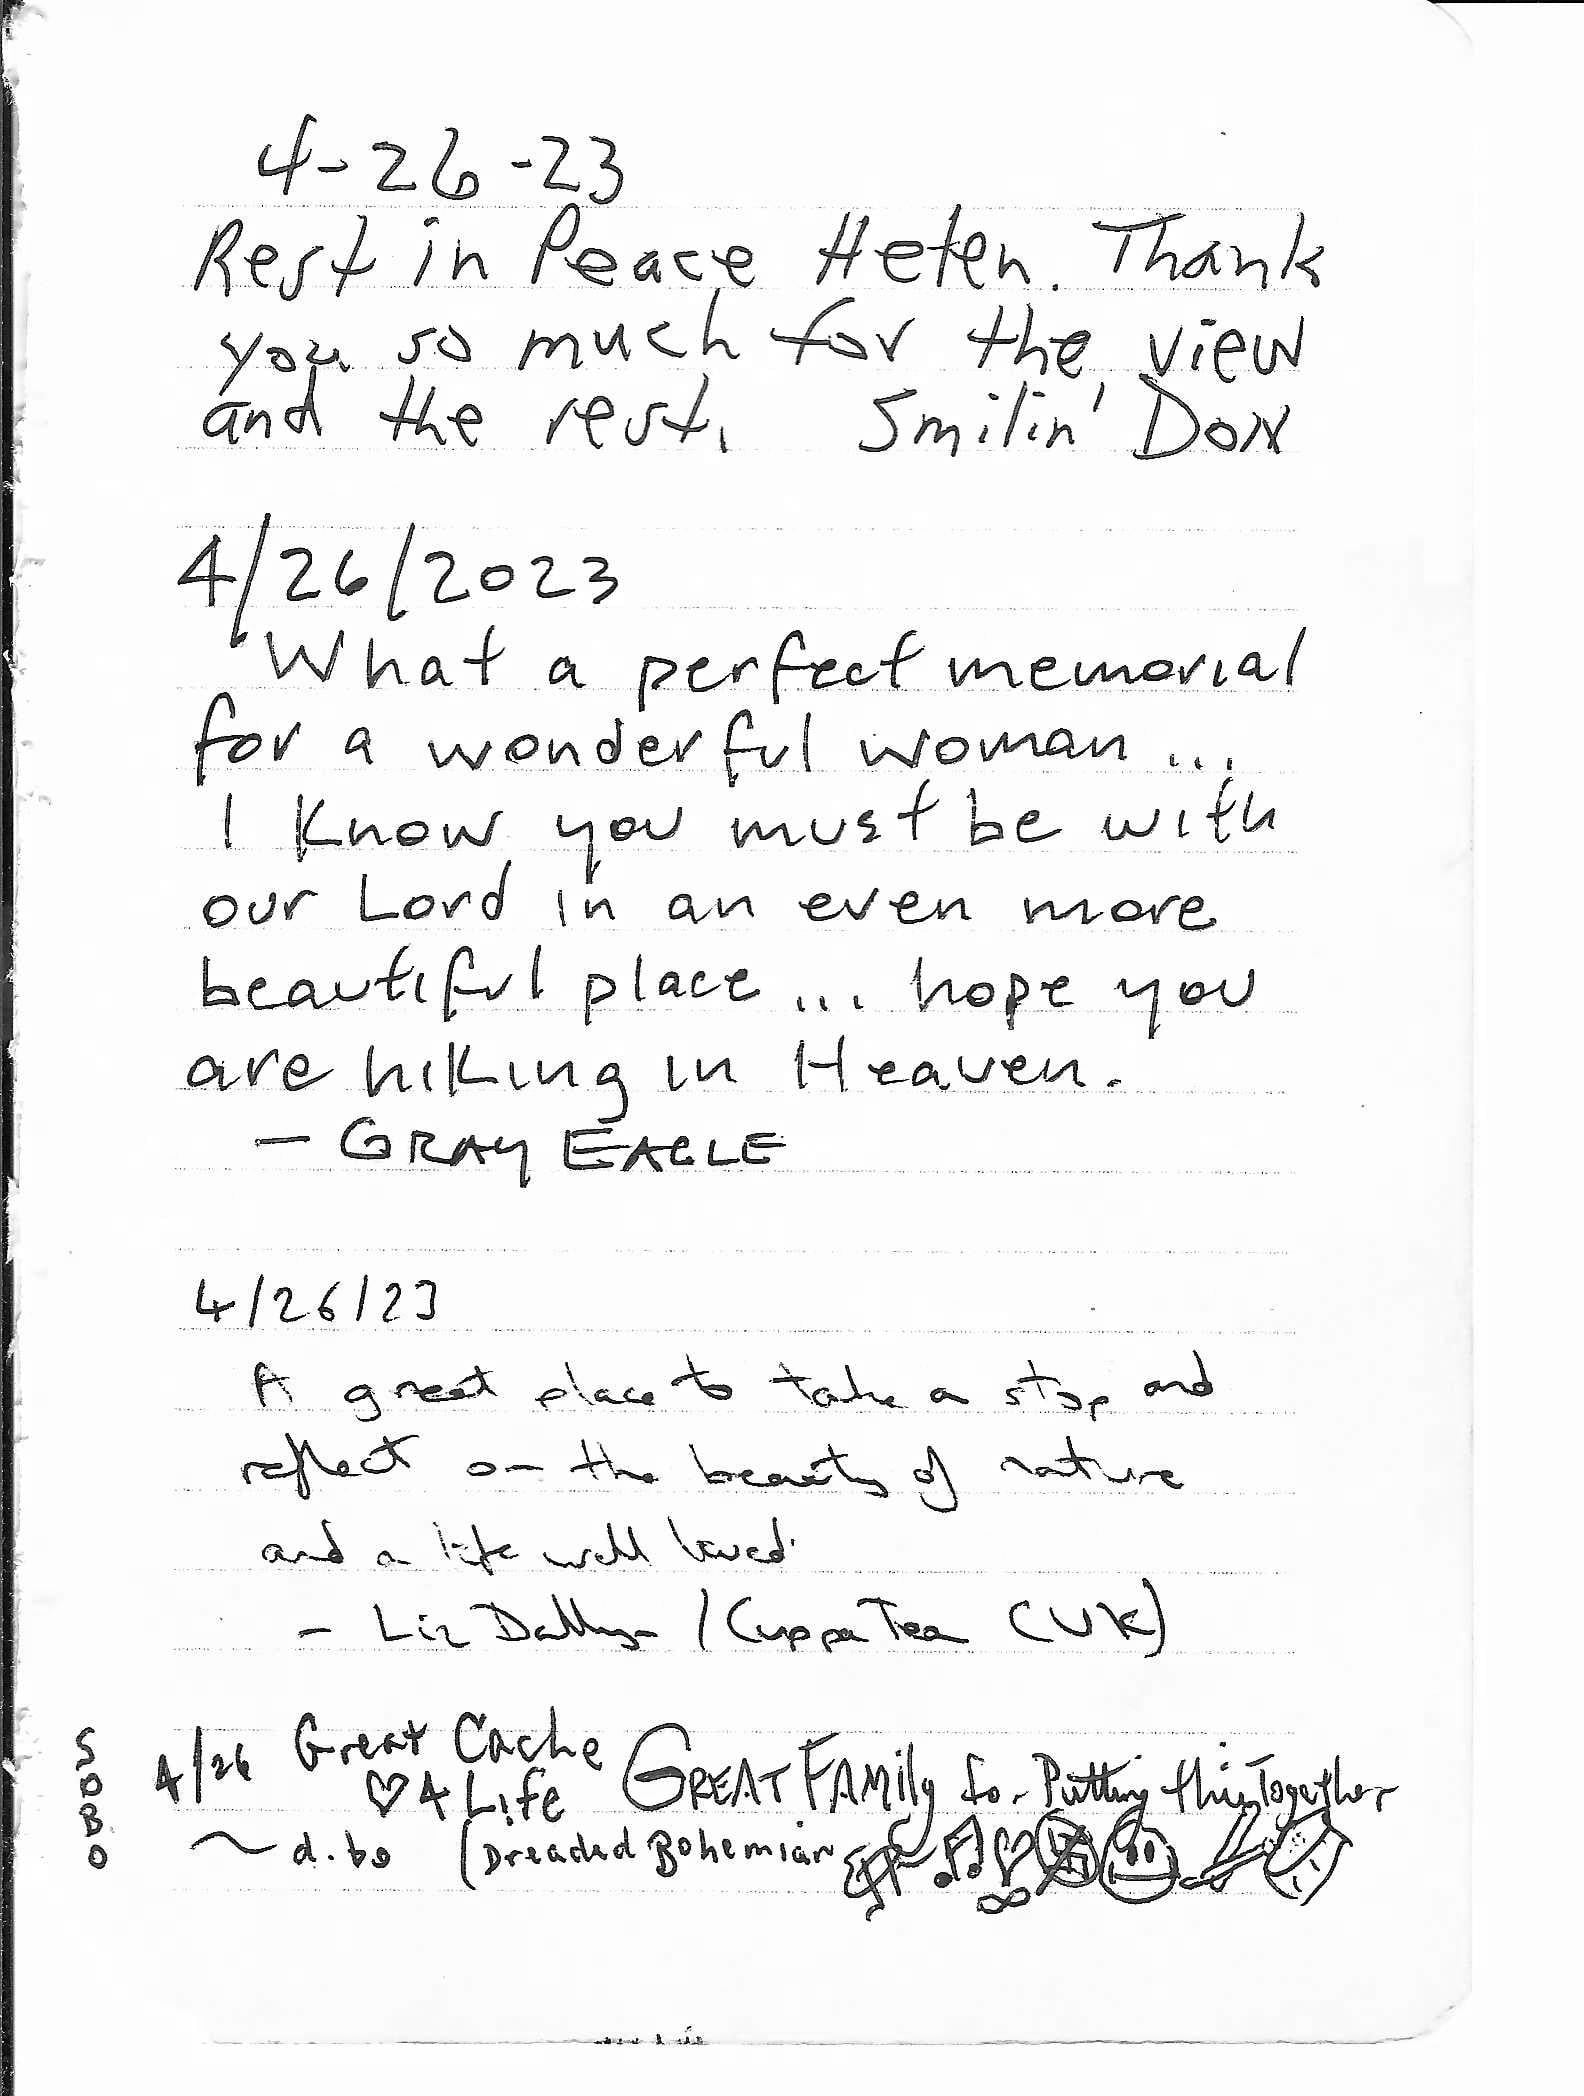 4-26-23
Rest in Peace Helen. Thank
you so much for the view
and the rest. Smilin' Don
4/26/2023
What a perfect memorial
for a wonderful woman...
I know you must be with
our Lord in an even more
beautiful place... hope you
are hiking in Heaven.
- GRAY EAGLE
4/26/23
A great place to take a stop and
reflect on the beauty of nature
and a life well lived.
- Liz / Cuppa Tea (UK)
SOBO
4/26 Great Cache GREAT FAMily for Putting this Together
♡ 4 Life
~ d.bo (Dreaded Bohemian